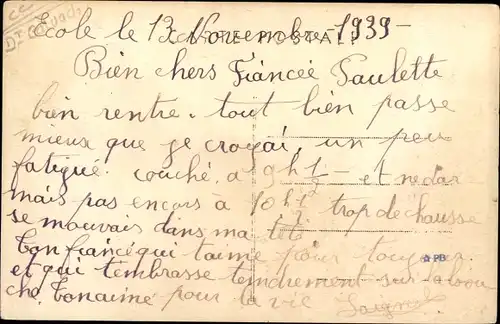 CC
Ecole le 13 Novembre - 1939 -
CARTE POSTALE
Bien chers Fiancée Paulette
bien rentre. tout bien passe
mieux que je croyai, un peu
fatigué. couché a 9h ½ - et ne dor
mais pas encors à 10h ½ trop de chausse
se mauvais dans ma téte
ton fiancé qui t'aime pour toujour
et qui tembrasse tendrement sur la bou
che. tonaime pour la vie
PB